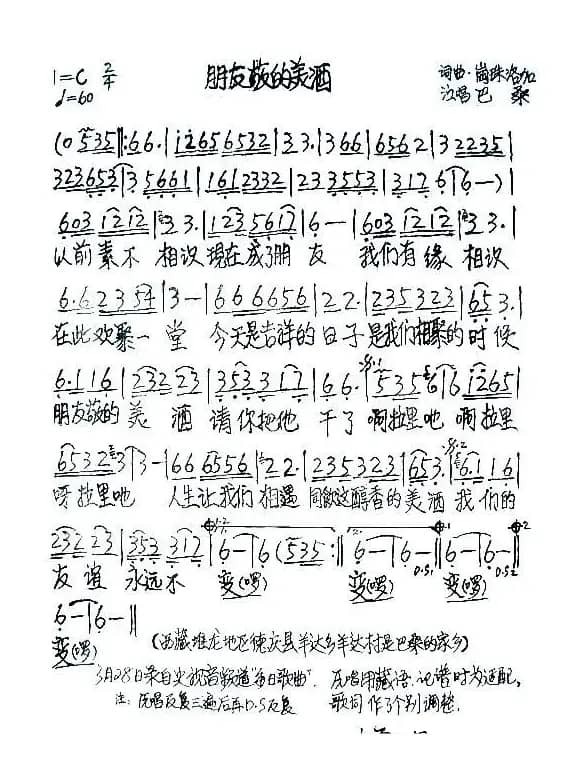 1=C 2/4 朋友敬的美酒 词曲·崗珠洛加
♩=60 演唱 巴 桑
(0 535‖:66.|i2656532|33.|366|6562|32235|
323653|3 5661|1612332|23 3553|317 6|6—)|
603 1212|3 3.|123 5617|6—|603 1212|3 3.|
以前素不 相识 现在成了朋 友 我们有缘 相识
6.6 23 54|3—|666656|22.|235323|653.|
在此欢聚一 堂 今天是吉祥的日子是我们相聚的时候
6.116|232 23|353 317|66.|535 66|i265|
朋友敬的 美 酒 请你把他 干了 啊拉里吔 啊拉里
6532 3|3-|66 6556|22.|235323|653.|6.116|
呀拉里吔 人生让我们 相遇 同飲这醇香的美酒 我们的
232 23|353 317|6—|6(535:‖6—|6—‖6—|6—‖
友 谊 永远不 变(啰) 变(啰) D.S1 变(啰) D.S2
6—|6—‖
变(啰)
(西藏堆龙地区德庆县羊达乡羊达村是巴桑的家乡)
3月28日录自央视音频道"每日歌曲". 原唱用藏语.记谱时为适配,
注:原唱反复三遍后再D.S反复 歌词作了个别调整.